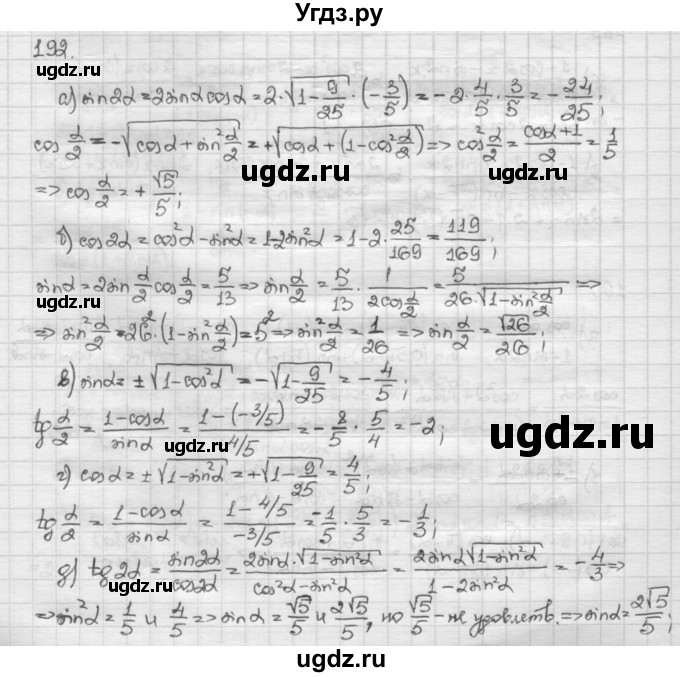 Угдз.ру
192.
а) sin2α = 2sinα cosα = 2·√(1-9/25)·(-3/5) = -2·4/5·3/5 = -24/25;
cos α/2 = -√(cosα + sin²α/2) = +√(cosα + (1-cos²α/2)) => cos²α/2 = (cosα+1)/2 = 1/5
ugdz.ru ugdz.ru
=> cos α/2 = + √5/5;
б) cos2α = cos²α - sin²α = 1-2sin²α = 1-2·25/169 = 119/169;
sinα = 2sin α/2 cos α/2 = 5/13 => sin α/2 = 5/13 · 1/(2cos α/2) = 5/(26·√(1-sin²α/2)) =>
ugdz.ru
=> sin²α/2 = 26²·(1-sin²α/2) = 5² => sin²α/2 = 1/26 => sin α/2 = √26/26;
в) sinα = ±√(1-cos²α) = -√(1-9/25) = -4/5;
tg α/2 = (1-cosα)/sinα = (1-(-3/5))/(-4/5) = -8/5 · 5/4 = -2;
ugdz.ru ugdz.ru
г) cosα = ±√(1-sin²α) = +√(1-9/25) = 4/5;
tg α/2 = (1-cosα)/sinα = (1-4/5)/(-3/5) = -1/5 · 5/3 = -1/3;
ugdz.ru
д) tg2α = sin2α/cos2α = 2sinα·√(1-sin²α)/(cos²α-sin²α) = 2sinα√(1-sin²α)/(1-2sin²α) = -4/3 =>
=> sin²α = 1/5 и 4/5 => sinα = √5/5 и 2√5/5, но √5/5 - не удовлетв. => sinα = 2√5/5;
ugdz.ru